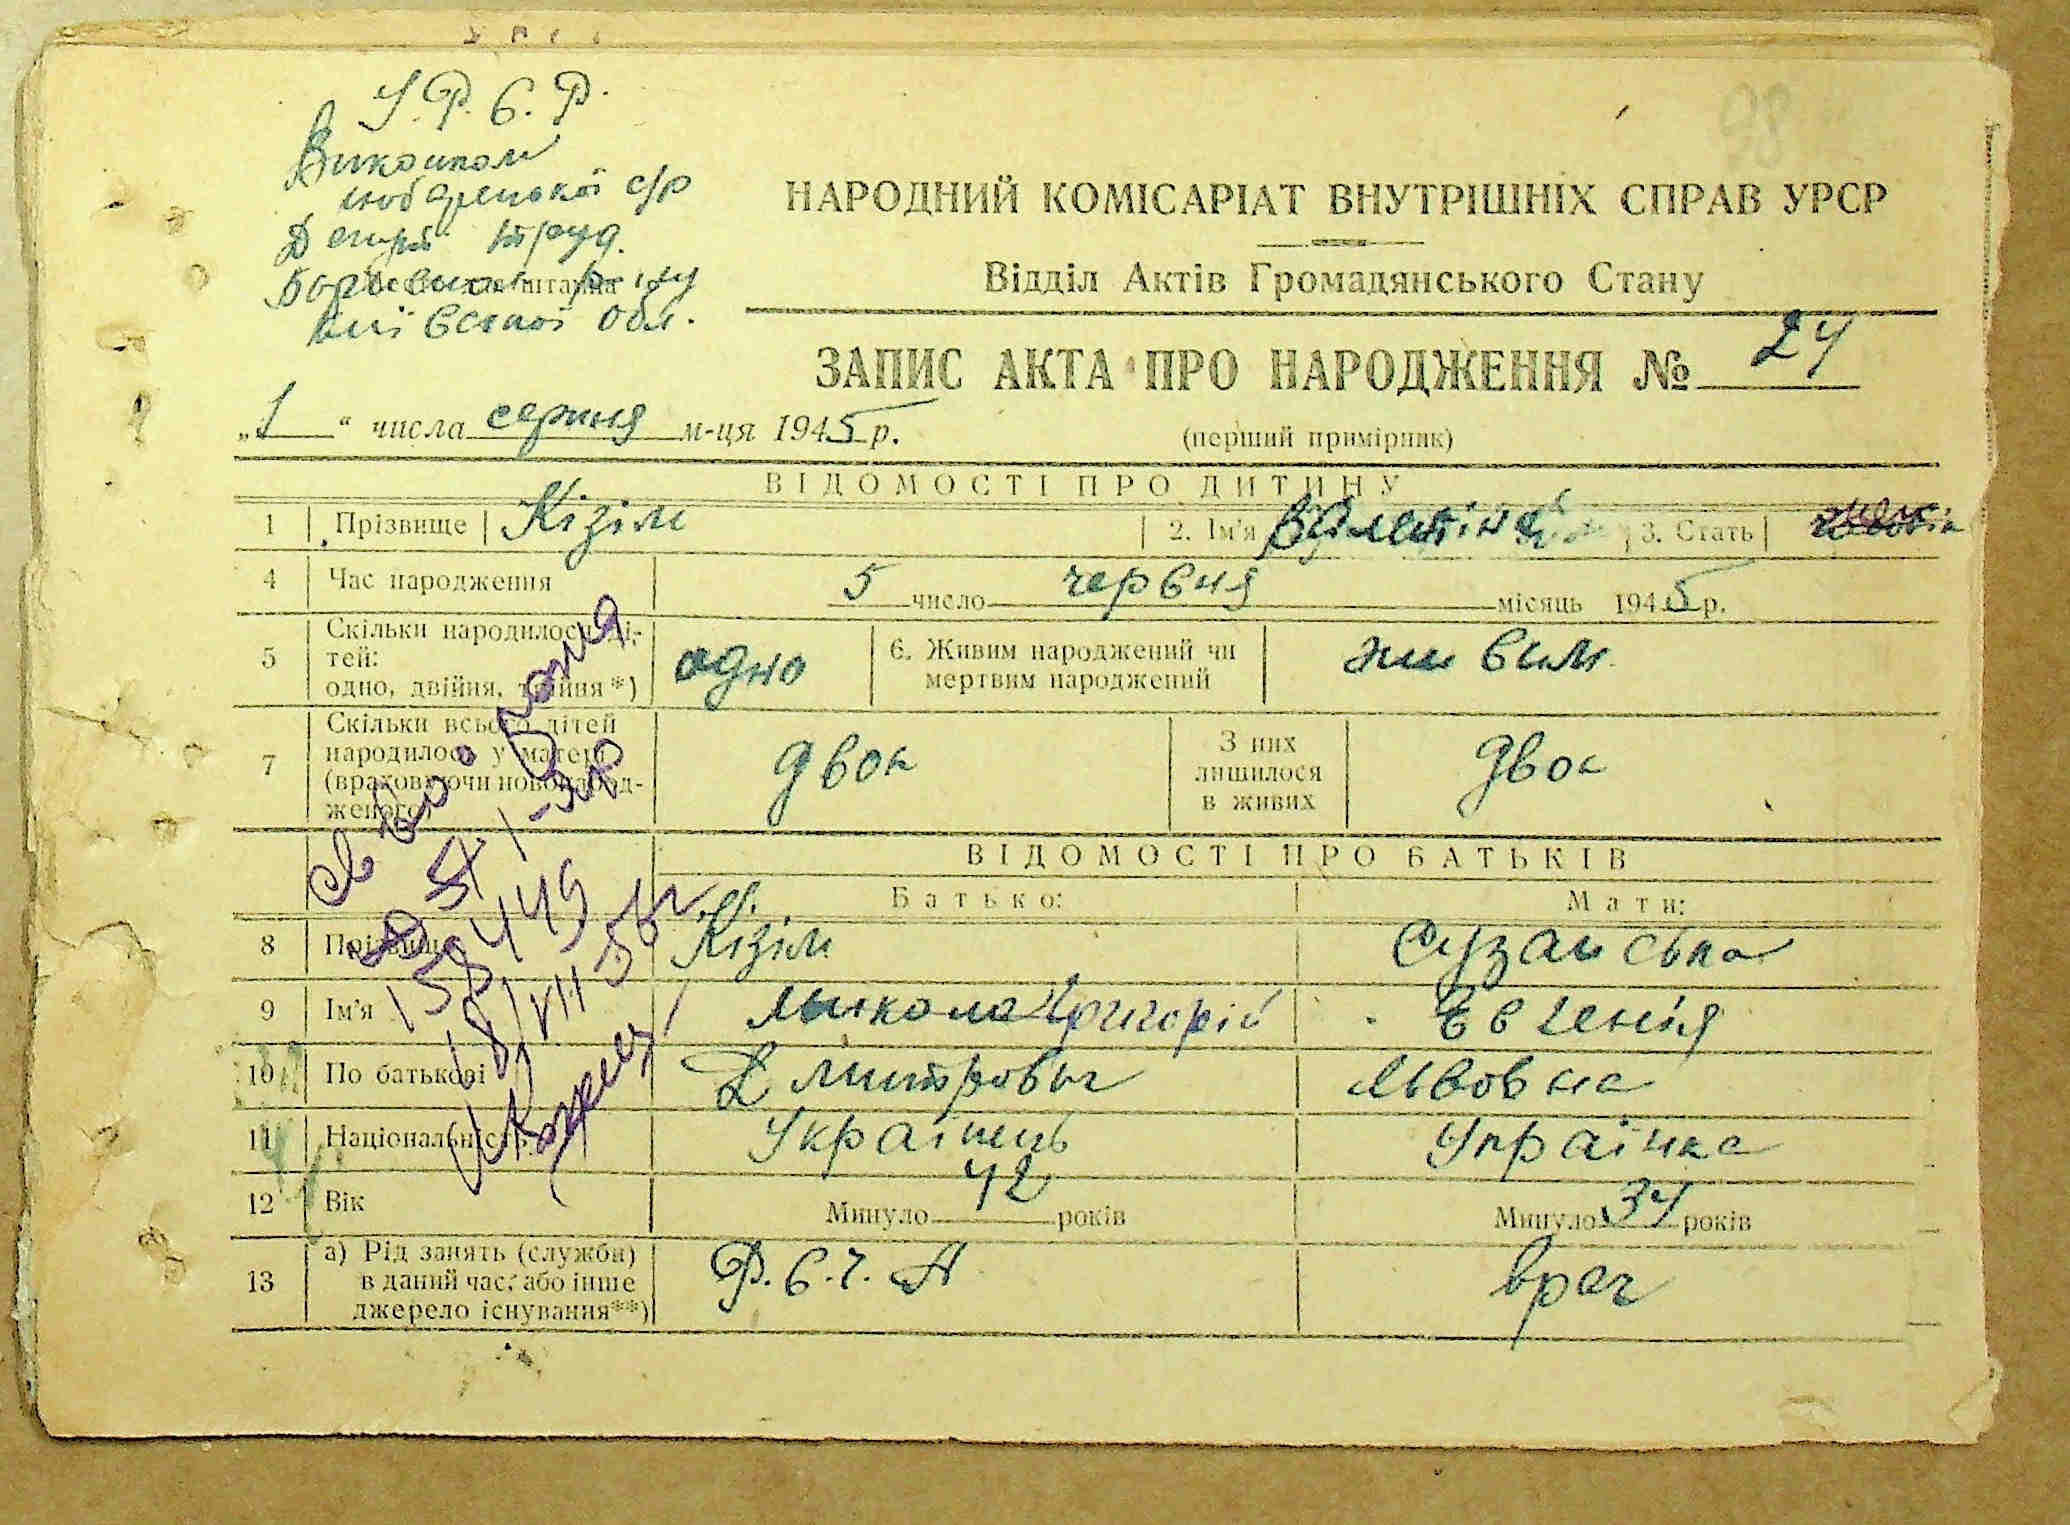 98
У.Р.С.Р.
Виконком
с/р
Депут. труд.
Київської обл.
НАРОДНИЙ КОМІСАРІАТ ВНУТРІШНІХ СПРАВ УРСР
Відділ Актів Громадянського Стану
ЗАПИС АКТА ПРО НАРОДЖЕННЯ № 24
„1“ числа серпня м-ця 1945 р.
(перший примірник)
ВІДОМОСТІ ПРО ДИТИНУ
1 Прізвище Кізім 2. Ім'я 3. Стать
4 Час народження 5 число червня місяць 1945 р.
5 Скільки народилося ді-
тей:
одно, двійня, трійня*) одно 6. Живим народжений чи
мертвим народжений живим
7 Скільки всього дітей
народилось у матері
(враховуючи новонарод-
женого) двоє З них
лишилося
в живих двоє
ВІДОМОСТІ ПРО БАТЬКІВ
Батько: Мати:
8 Прізвище Кізім Сузанська
9 Ім'я Микола Григорій Євгенія
10 По батькові Дмитрович Львовна
11 Національність Українець Українка
12 Вік Минуло 42 років Минуло 34 років
13 а) Рід занять (служби)
в даний час, або інше
джерело існування**) Р.С.Ч.А врач
158449
18/VII 56 г